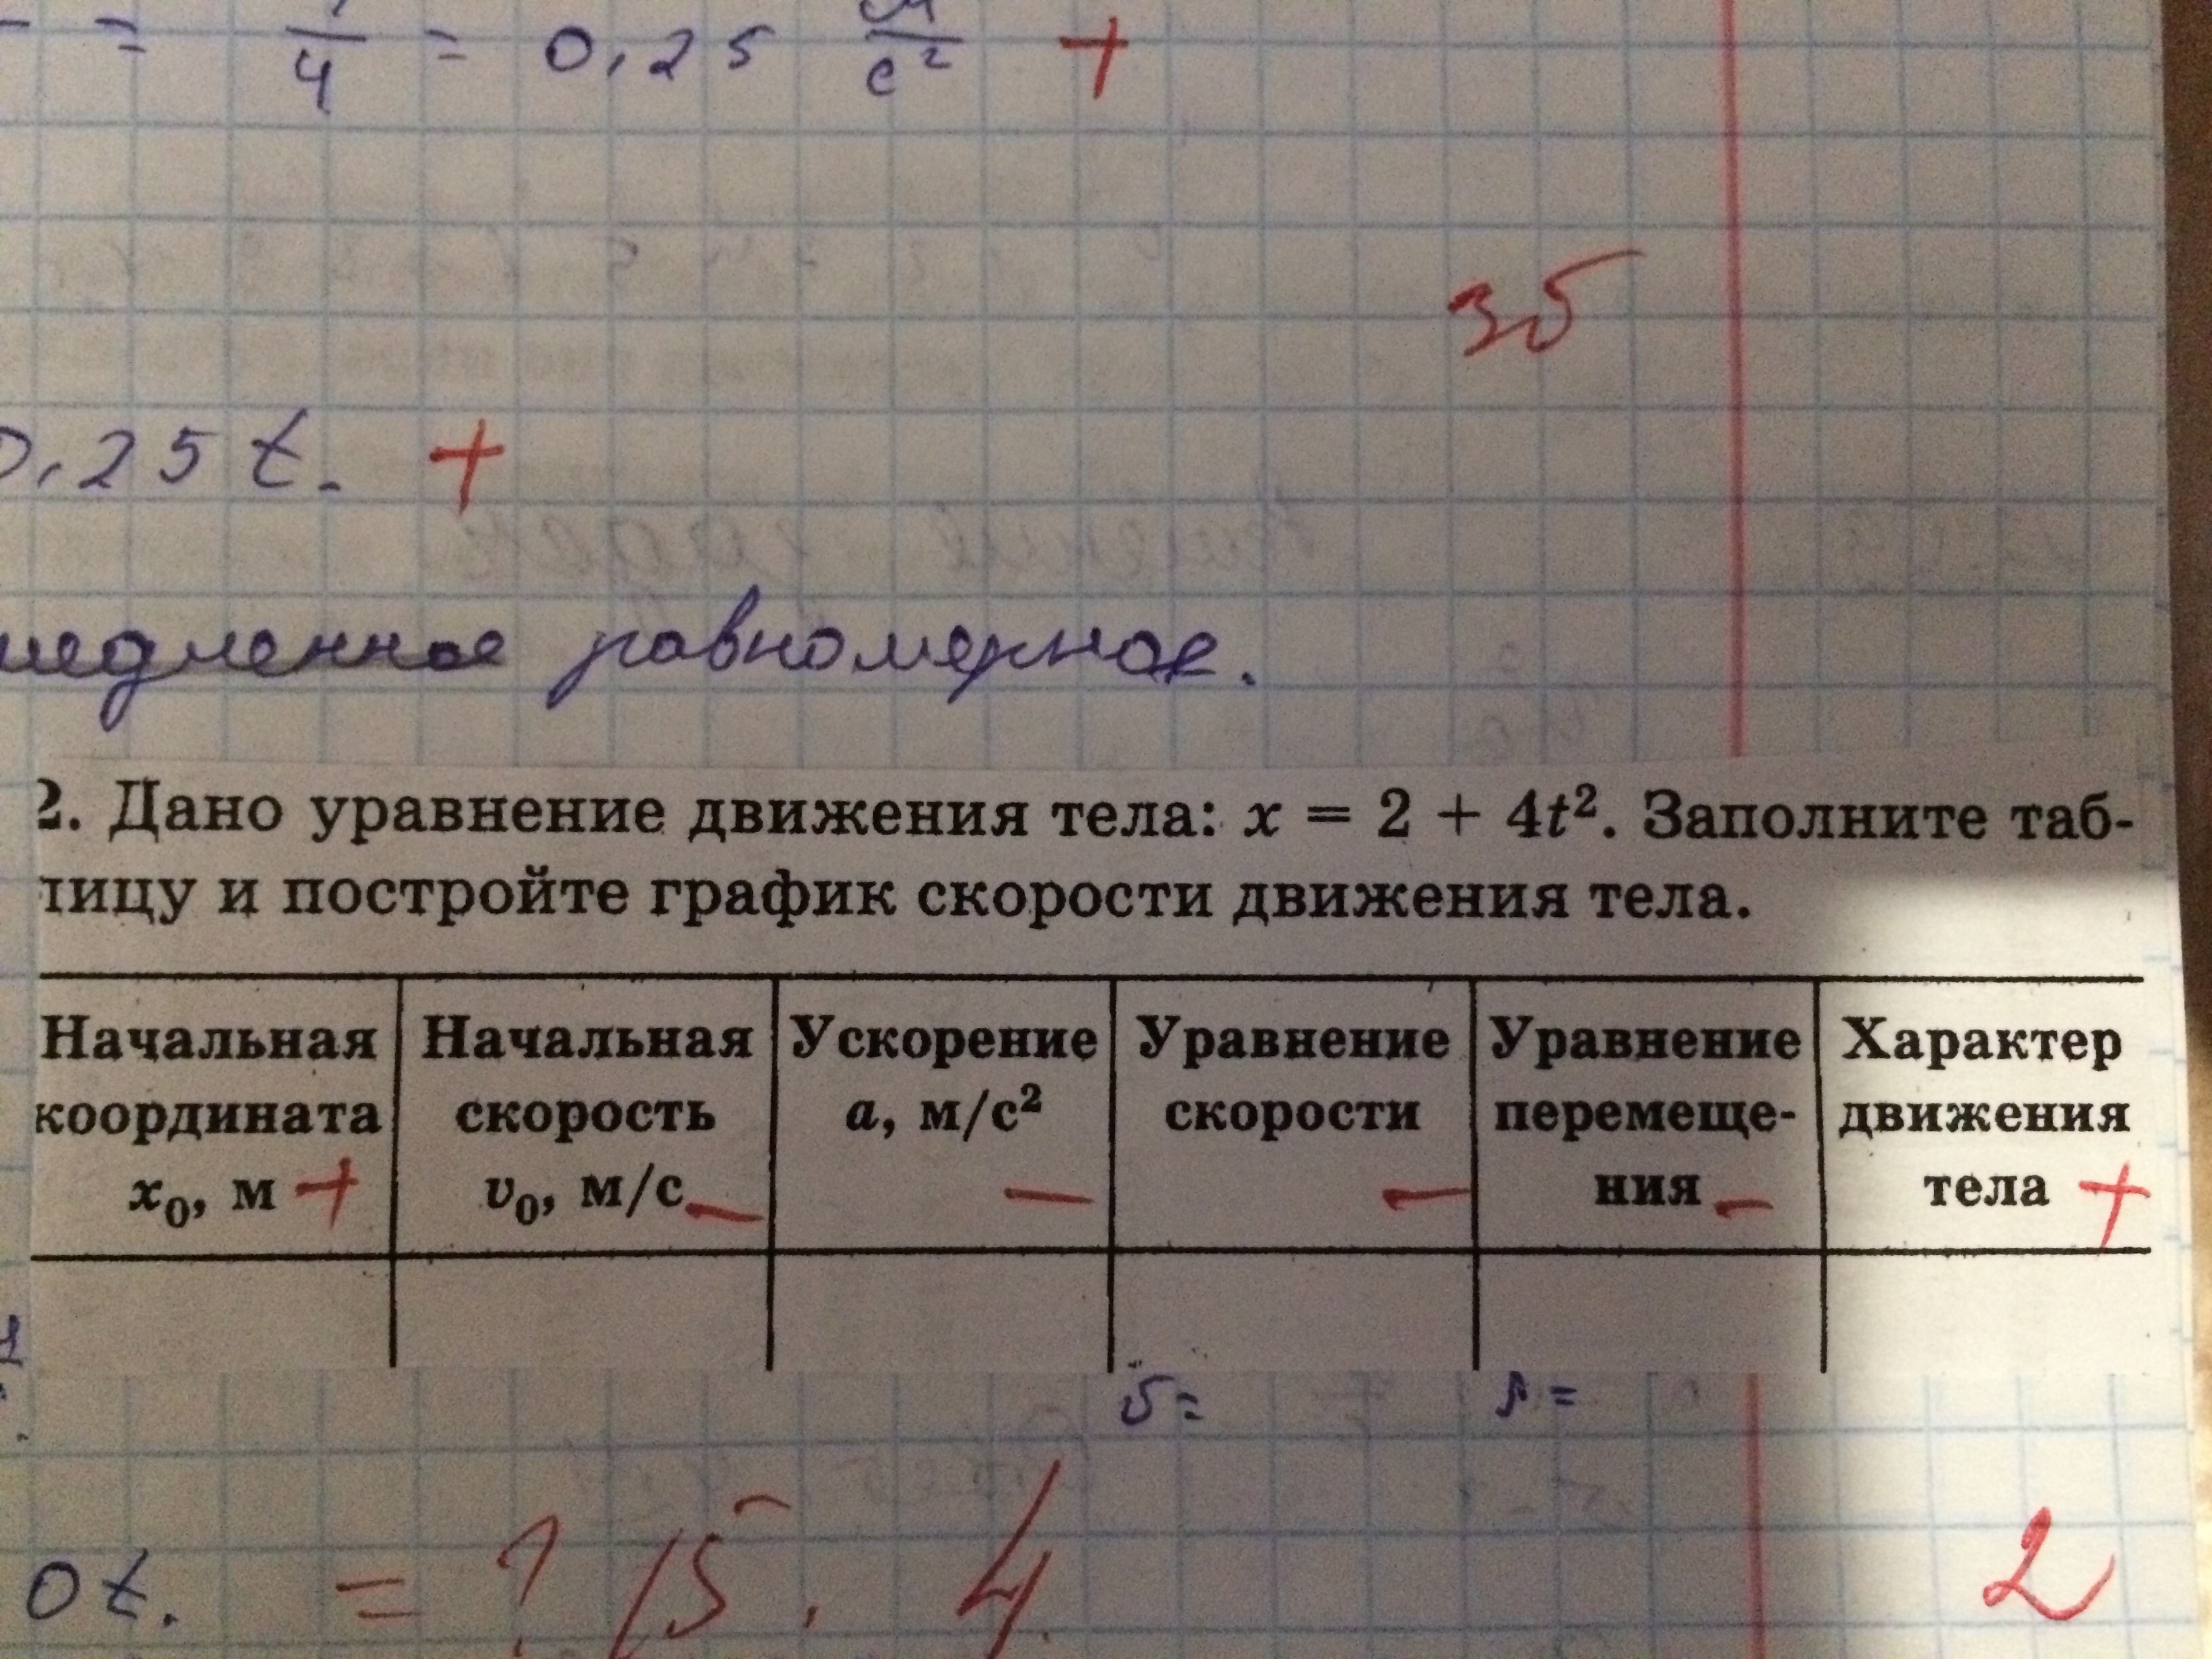 = 1/4 = 0,25 м/с² +
3б
0,25 t. +
медленное равномерное.
2. Дано уравнение движения тела: x = 2 + 4t². Заполните таб-
лицу и постройте график скорости движения тела.
Начальная координата x₀, м +
Начальная скорость v₀, м/с –
Ускорение a, м/с² –
Уравнение скорости –
Уравнение перемеще-
ния –
Характер движения тела +
υ= s =
0t. = ? 15. 4
2